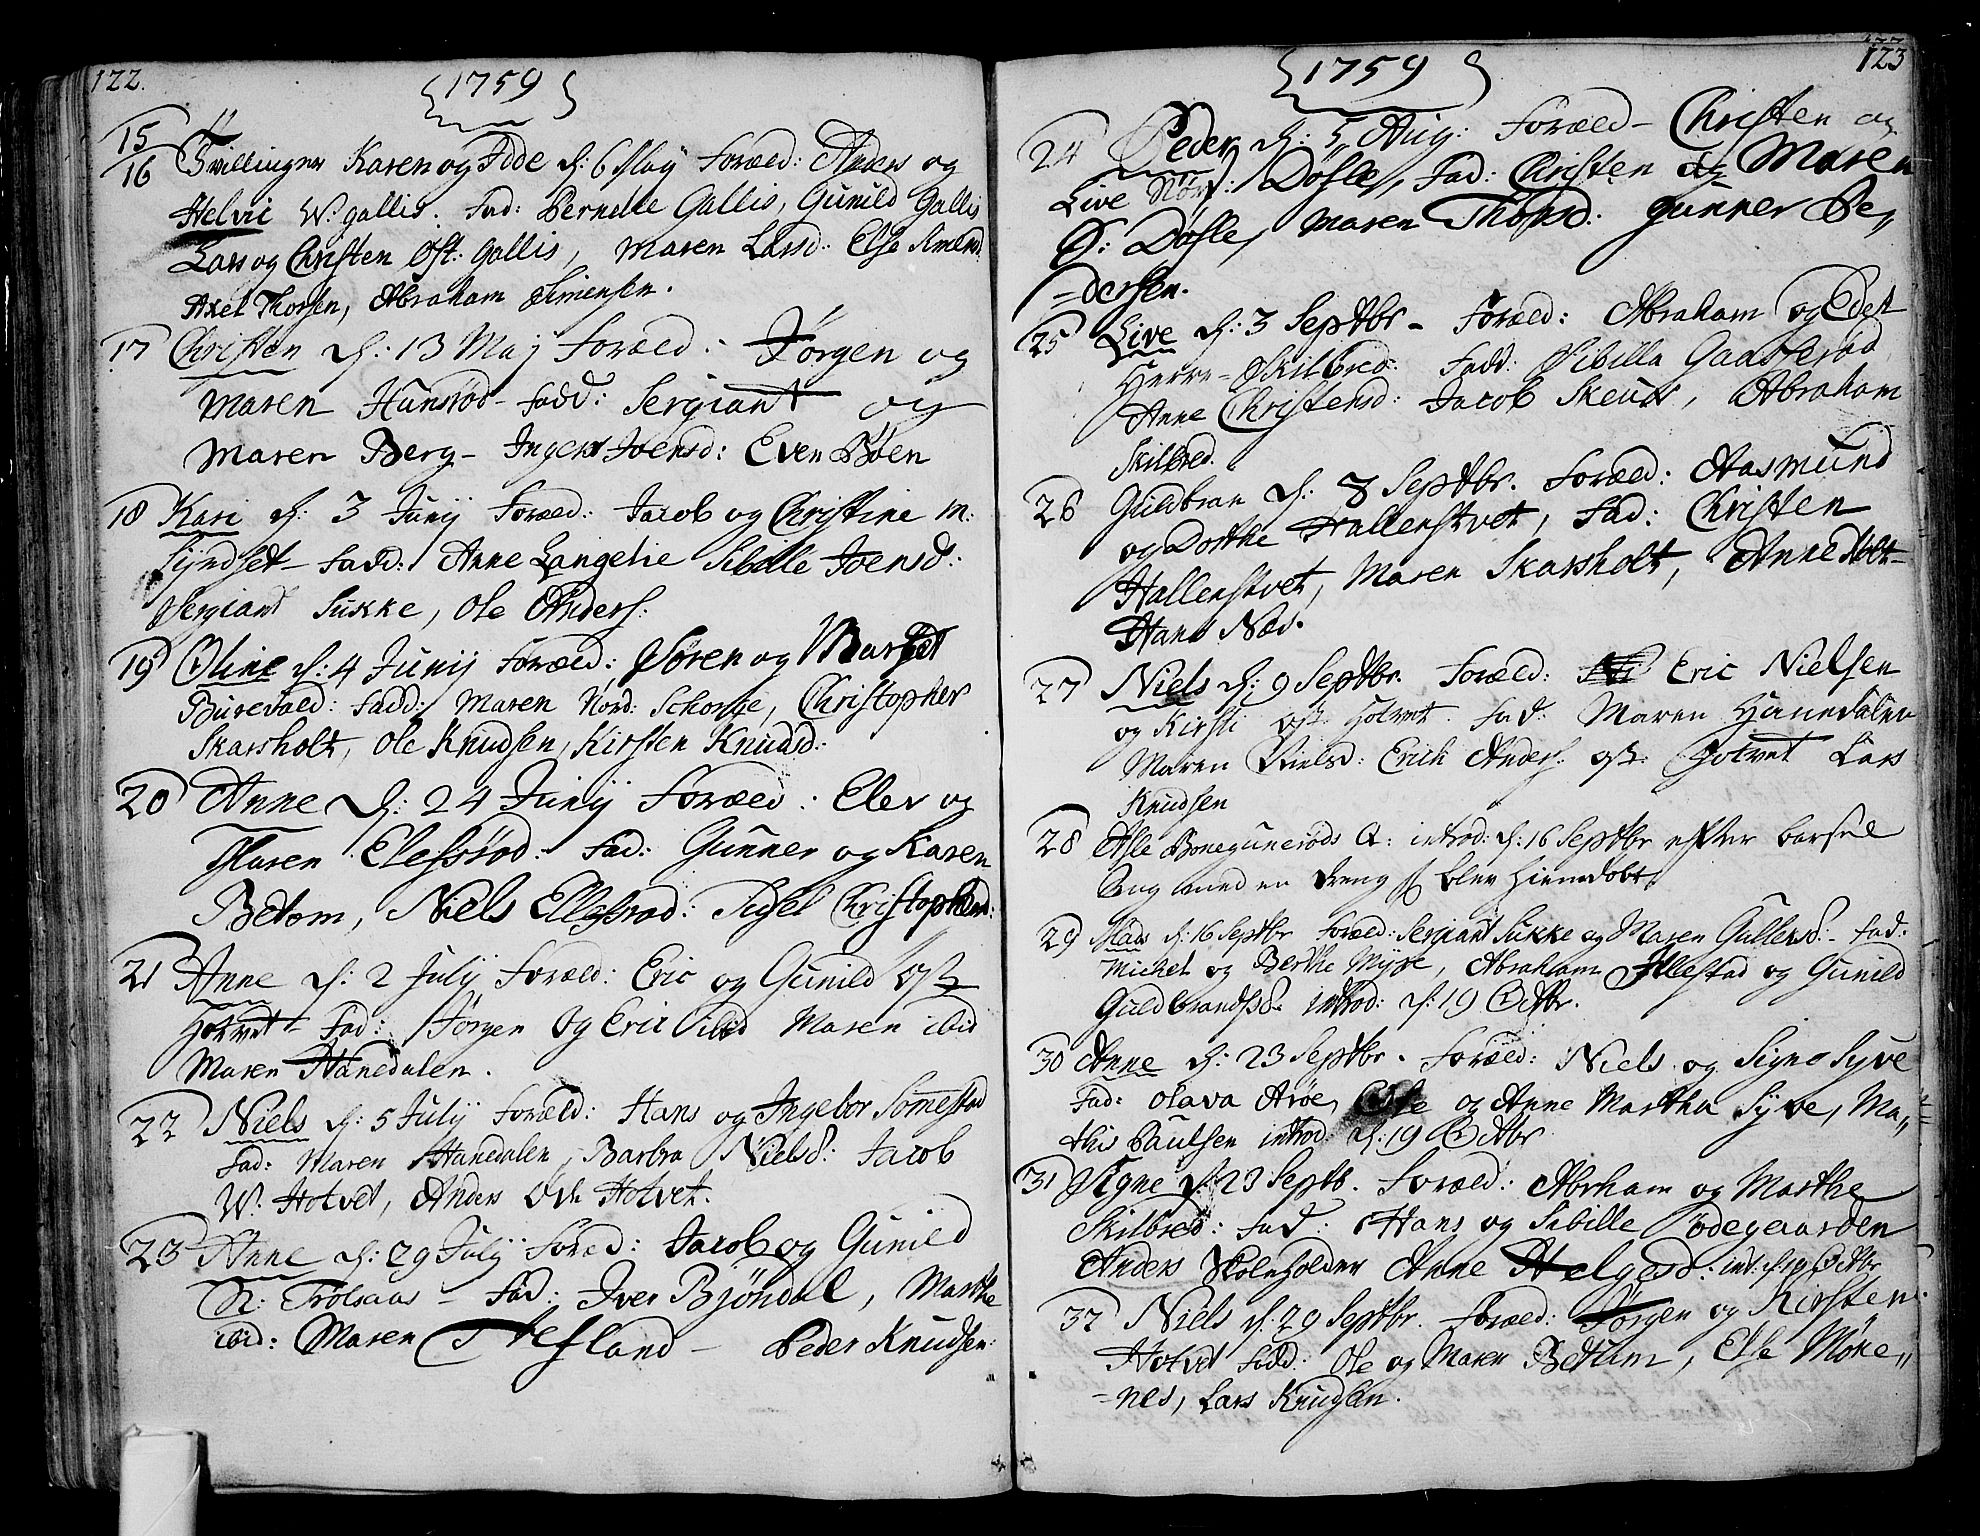 122.
1759
15
16 Tvillinger Karen og Idde d: 6 May Foræld: Anders og
Helvic W. gallis. Fad: Bernelle Gallis, Gunild Gallis
Lars og Christen Øst: gallis, Maren Larsd: Else Amunds
Axel Thorsen, Abraham Simensen.
17 Christen d: 13 Maj Foræld: Jørgen og
Maren Hansrød - Fadd: Sergiant og
Maren Berg - Inger Joensd: Even Bøen
18 Kari d: 3 Junij Foræld: Jacob og Christine m:
Syndset - Fadd: Anne Langelie Sibille Joensd:
Sergiant Sukke, Ole Anders:
19 Oline d: 4 Junij Foræld: Søren og Marget
Burevald: Fadd: Maren Nord: Schorge, Christopher
Skarsholt, Ole Knudsen, Kirsten Knudsd:
20 Anne d: 24 Junij Foræld: Elev og
Maren Elefsrød: Fad: Gunner og Karen
Betom, Niels Ellefsrød: Sidsel Christophersd:
21 Anne d: 2 Julij Foræld: Eric og Gunild øst
Hotvet - Fad: Jørgen og Eric ibid Maren ibid
Maren Hanedalen.
22 Niels d: 5 Julij Foræld: Hans og Ingebor Somestad
Fad: Maren Hanedalen, Barbra Nielsd: Jacob
W. Hotvet, Anders Hotvet.
23 Anne d: 29 Julij Foræd: Jacob og Gunild
N: Trolsaas - Fad: Iver Bjøndal, Marthe
ibid: Maren Tefsland - Peder Knudsen:
123
1759
24 Peder d: 5 Aug: Foræld - Christen og
Live Nør: Døsle, Fad: Christen og Maren
S: Døsle, Maren Thorsd: gunner Pe,
-dersen.
25 Live d: 3 Septbr - Foræld: Abraham og Edel
Herre - Skilbred: Fadd: Sibilla Gaaserød
Anne Christensd: Jacob Skeuds, Abraham
Skilbred.
26 Guldbran d: 8 Septbr. Foræld: Aasmund
og Dorthe Hallenstvet, Fad: Christen
Hallenstvet, Maren Skarsholt, Anne Holt-
Hans Næs.
27 Niels d: 9 Septbr. Foræld: Eric Nielsen
og Kirsti øst Hotvet. Fad: Maren Hanedalen
Maren Nielsd: Erich Anders: øst: Hotvet Lars
Knudsen
28 Asle Bonegunerøds Q: introd: d: 16 Septbr efter barsel
Sng med en dreng s blev hiemdøbt
29 Mads d: 16 Septbr Foræld: Sergiant Sukke og Maren Gullersd: - Fad:
Michel og Berthe Myre, Abraham Allestad og Gunild
Guldbrandsd: introd: d: 19 Octbr.
30 Anne d: 23 Septbr. Foræld: Niels og Signe Syve
Fad: Olava Arøe, Ole og Anne Martha Syve, Ma,,
this Paulsen introd d: 19 Octbr
31 Signe d: 23 Septb. Foræld: Abrham og Marthe
Skilbred: Fad: Hans og Sibille Ødegaarden
Anders Skoleholder Anne Helgesd: int: d: 19 Octbr
32 Niels d: 29 Septbr. Foræld: Jørgen og Kirsten
Hotvet Fadd: Ole og Maren Bettum, Else Møne,,
-nes, Lars Knudsen.